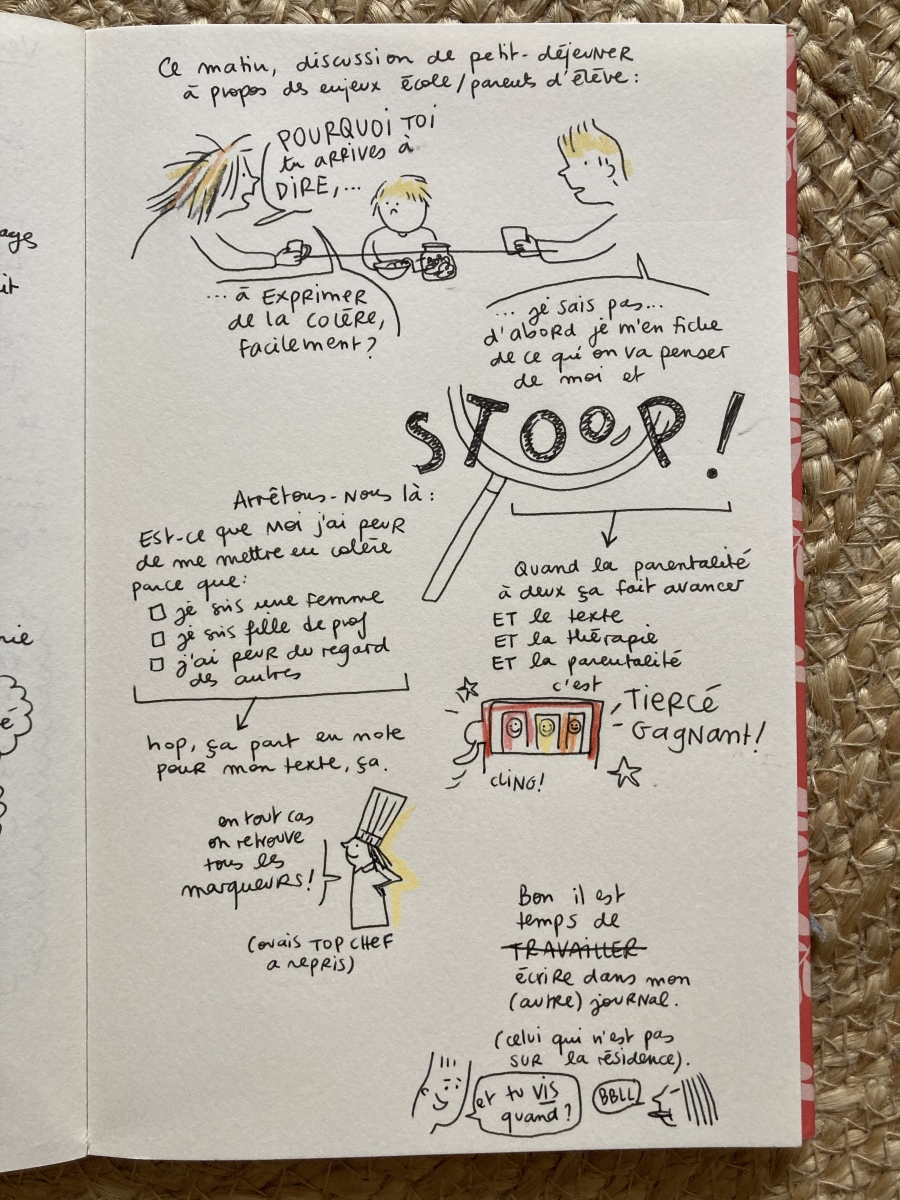 Ce matin, discussion de petit-déjeuner
à propos des enjeux école/parents d'élève :
POURQUOI TOI
tu arrives à
DIRE,...
... à EXPRIMER
de la COLÈRE,
facilement ?
... je sais pas...
d'abord je m'en fiche
de ce qu'on va penser
de moi et
STOOOP !
Arrêtons-nous là :
Est-ce que moi j'ai peur
de me mettre en colère
parce que :
je suis une femme
je suis fille de prof
j'ai peur du regard
des autres
hop, ça part en note
pour mon texte, ça.
Quand la parentalité
à deux ça fait avancer
ET le texte
ET la thérapie
ET la parentalité
c'est
TIERCÉ
GAGNANT !
CLING !
en tout cas
on retrouve
tous les
marqueurs !
(ouais TOP CHEF
a repris)
Bon il est
temps de
TRAVAILLER
écrire dans mon
(autre) journal.
(celui qui n'est pas
SUR la résidence).
et tu VIS
quand ?
BBLL